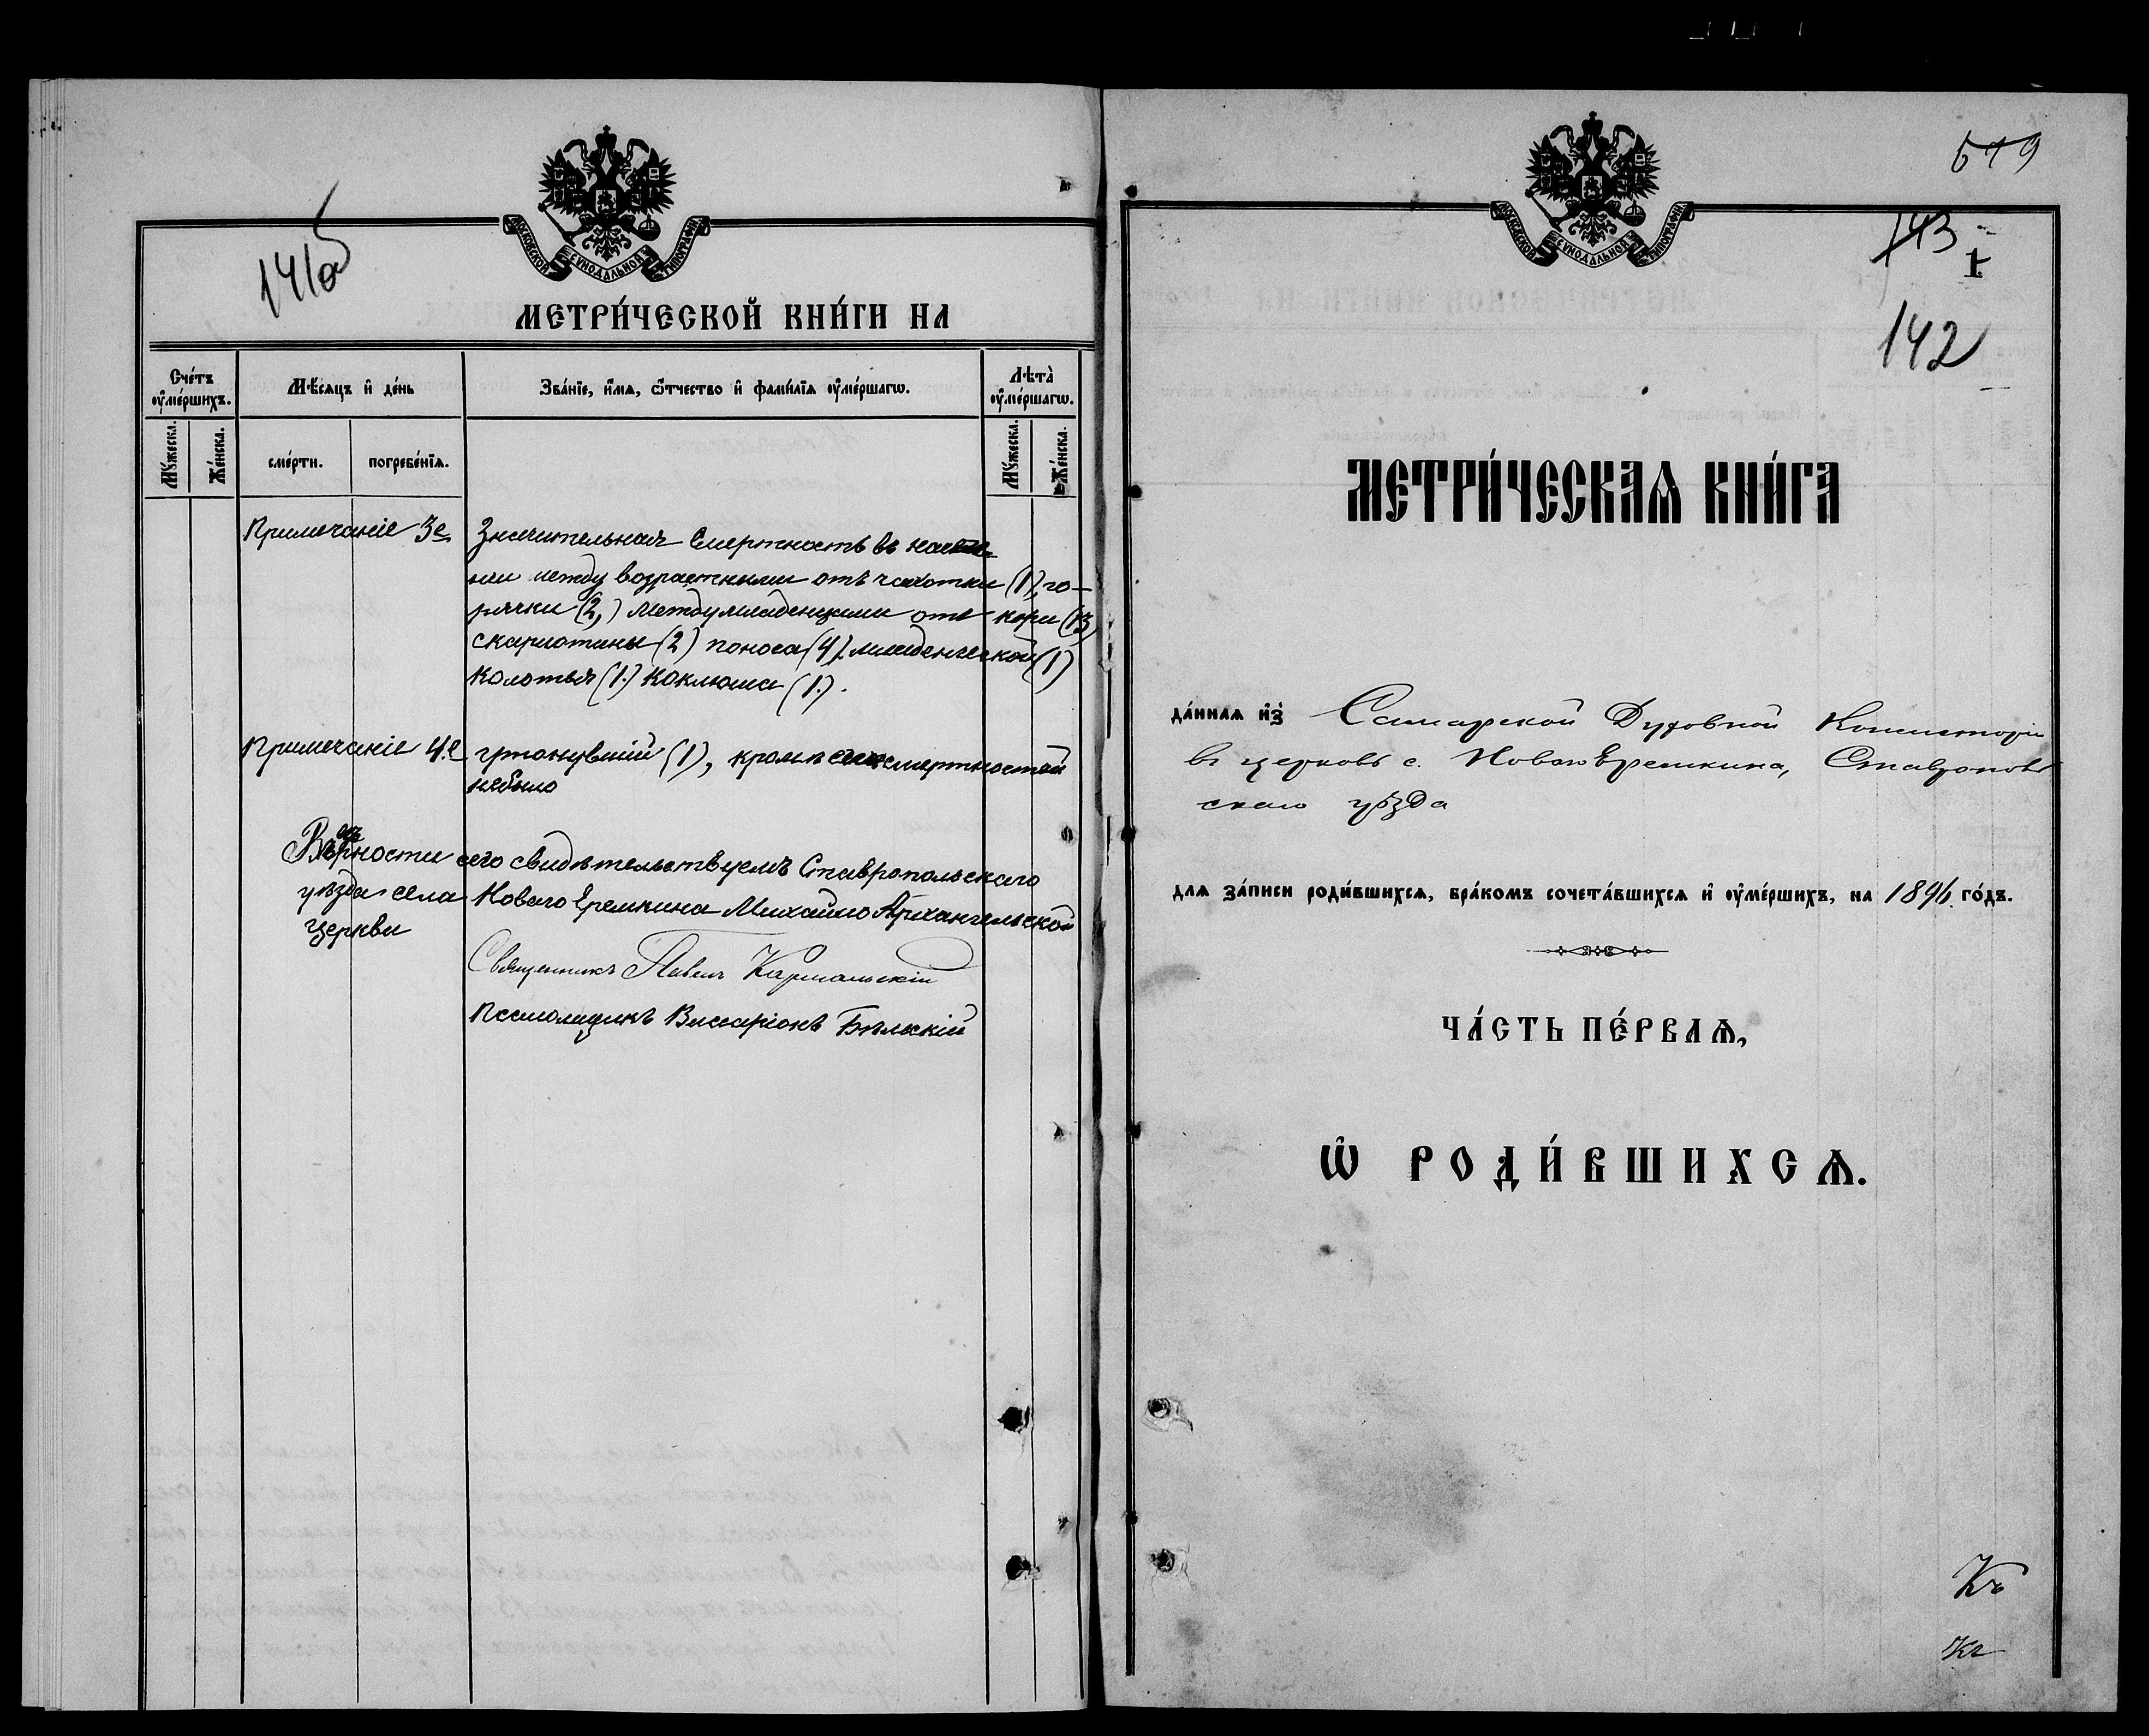 141об
МОСКОВСКОЙ СУНОДАЛЬНОЙ ТИПОГРАФІИ
МЕТРИ́ЧЕСКОЙ КНИ́ГИ НА
Сче́тъ ᲂу҆ме́ршихъ.
Мѣ́сяцъ и҆ де́нь
Зва́нїе, и҆́мѧ, ѻ҆́тчество и҆ фамѝлїѧ ᲂу҆ме́ршагѡ.
Лѣта̀ ᲂу҆ме́ршагѡ.
Мꙋ́жеска.
Же́нска.
сме́рти.
погребе́нїѧ.
Мꙋ́жеска.
Же́нска.
Примечаніе 3е
Значительная смертность въ
нии между возрастными отъ чахотки (1), го-
рячки (2,) между младенцами отъ кори (13)
скарлотины (2) поноса (4) младенческой (1)
колотья (1.) коклюша (1.).
Примечаніе 4.е
утонувшій (1), кромѣ смертностей
небыло
Вѣрности сего свидѣтельствуемъ Ставропольскаго
уѣзда села Новаго Еремкина Михайло Архангельской
церкви
Священникъ Павелъ Кармальскій
Псаломщикъ Виссаріонъ Бѣльскій
519
143
1
142
МОСКОВСКОЙ СУНОДАЛЬНОЙ ТИПОГРАФІИ
МЕТРИ́ЧЕСКАѦ КНИ́ГА
да́ннаѧ и҆з̾ Самарской Духовной Консисторіи
въ церковь с. Новаго Еремкина, Ставрополь
скаго уѣзда
для за́писи роди́вшихся, бра́комъ сочета́вшихся и҆ ᲂу҆ме́ршихъ, на 1896 го́дъ.
ЧА́СТЬ ПЕ́РВАѦ,
Ѡ҆ РОДИ́ВШИХСѦ.